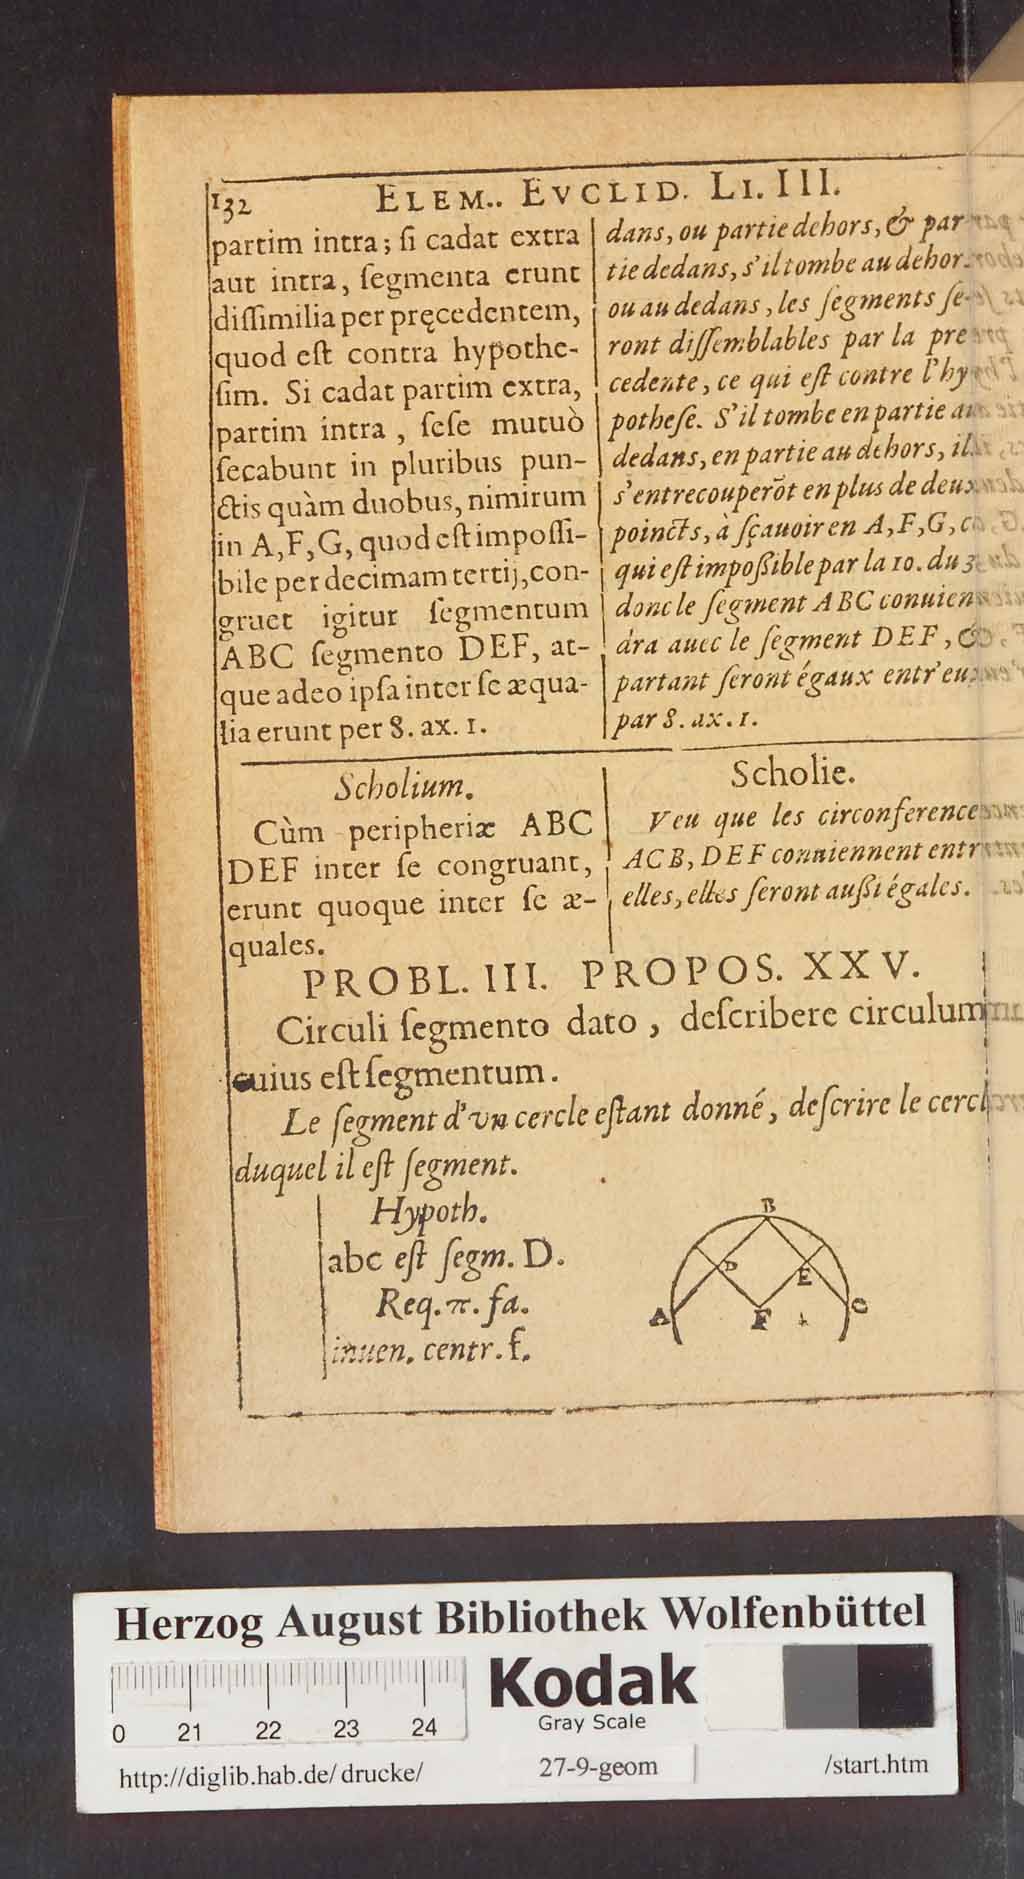 132 ELEM.. EVCLID. LI. III.
partim intra; ſi cadat extra
aut intra, ſegmenta erunt
diſſimilia per pręcedentem,
quod eſt contra hypothe-
ſim. Si cadat partim extra,
partim intra, ſeſe mutuò
ſecabunt in pluribus pun-
ctis quàm duobus, nimirum
in A, F, G, quod eſt impoſſi-
bile per decimam tertij, con-
gruet igitur ſegmentum
ABC ſegmento DEF, at-
que adeo ipſa inter ſe æqua-
lia erunt per 8. ax. 1.
dans, ou partie dehors, & par
tie dedans, s'il tombe au dehor
ou au dedans, les ſegments ſe-
ront diſſemblables par la pre
cedente, ce qui eſt contre l'hy
potheſe. S'il tombe en partie au
dedans, en partie au dehors, il
s'entrecouperõt en plus de deux
poincts, à ſçauoir en A, F, G, ce
qui eſt impoßible par la 10. du 3
donc le ſegment ABC conuien
dra auec le ſegment DEF, &
partant ſeront égaux entr'eux
par 8. ax. 1.
Scholium.
Cùm peripheriæ ABC
DEF inter ſe congruant,
erunt quoque inter ſe æ-
quales.
Scholie.
Veu que les circonference
ACB, DEF conuiennent entr
elles, elles ſeront außi égales.
PROBL. III. PROPOS. XXV.
Circuli ſegmento dato, deſcribere circulum
cuius eſt ſegmentum.
Le ſegment d'vn cercle eſtant donné, deſcrire le cercl
duquel il eſt ſegment.
Hypoth.
abc eſt ſegm. D.
Req. π. fa.
inuen. centr. f.
B
D
E
A
F
C
Herzog August Bibliothek Wolfenbüttel
Kodak
Gray Scale
0 21 22 23 24
http://diglib.hab.de/drucke/ 27-9-geom /start.htm